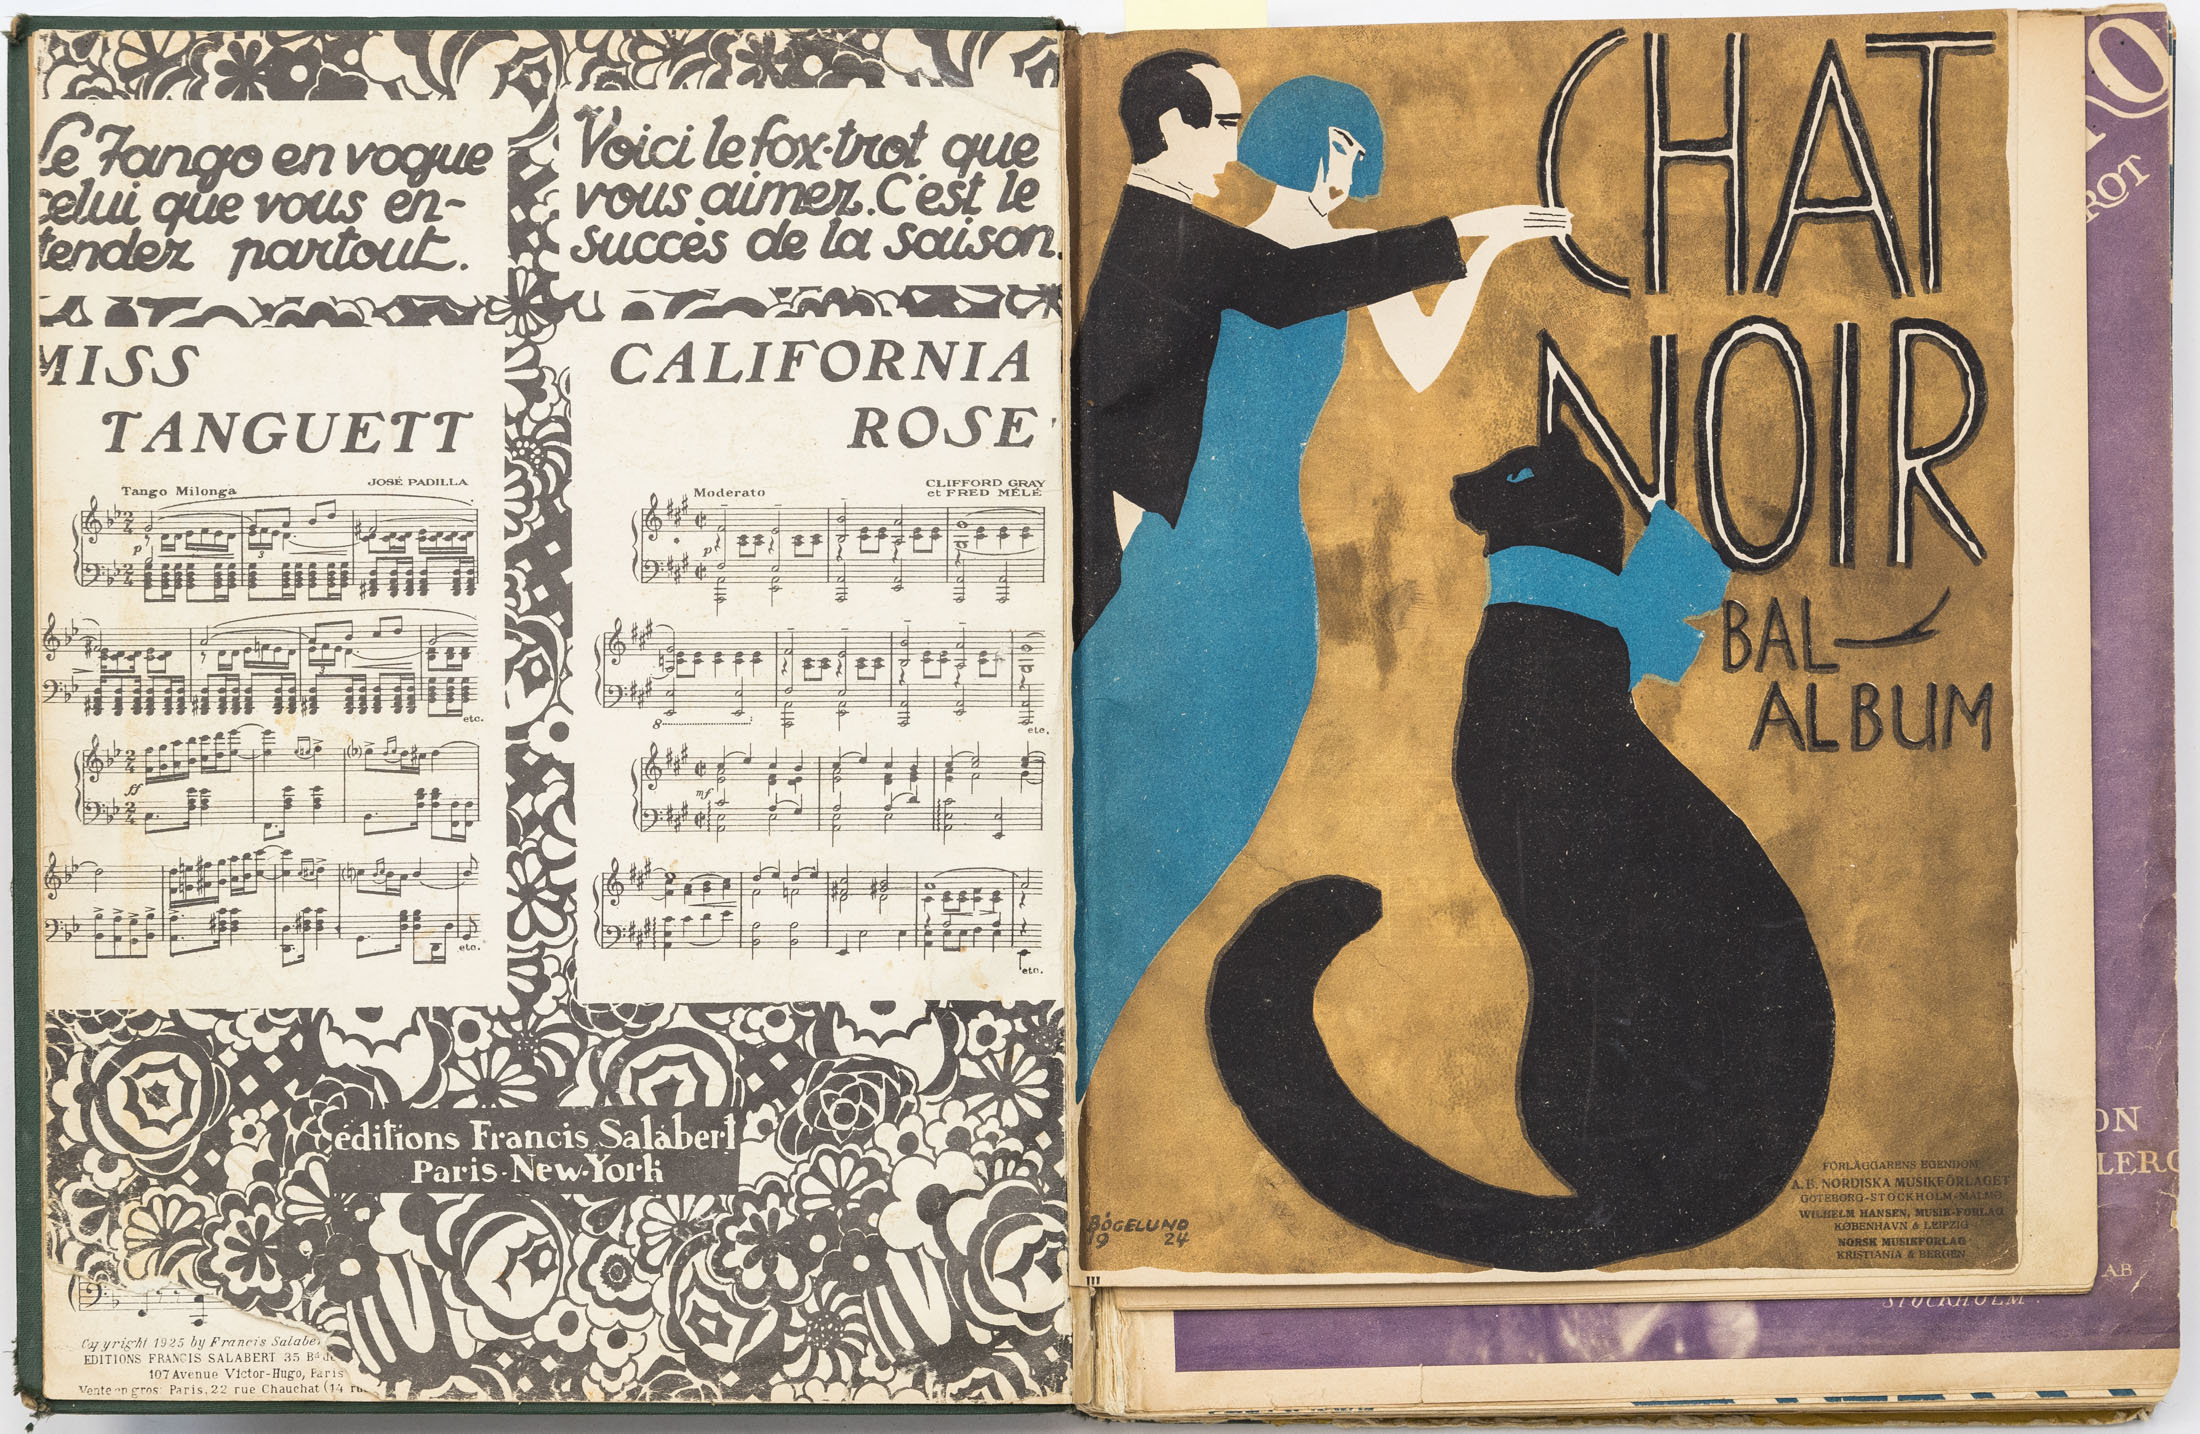 Le Tango en vogue
celui que vous en-
tendez partout.
MISS
TANGUETT
JOSÉ PADILLA
Tango Milonga
p
3
3
etc.
ff
etc.
Voici le fox-trot que
vous aimez. C'est le
succès de la saison.
CALIFORNIA
ROSE
CLIFFORD GRAY
et FRED MÉLÉ
Moderato
p
8
etc.
mf
etc.
éditions Francis Salabert
Paris-New-York
Copyright 1925 by Francis Salaber
EDITIONS FRANCIS SALABERT 35 Bd
107 Avenue Victor-Hugo, Paris
Vente en gros: Paris, 22 rue Chauchat (14 ru
CHAT
NOIR
BAL-
ALBUM
BÖGELUND
19 24
FÖRLÄGGARENS EGENDOM
A. B. NORDISKA MUSIKFÖRLAGET
GÖTEBORG-STOCKHOLM-MALMÖ
WILHELM HANSEN, MUSIK-FORLAG
KØBENHAVN & LEIPZIG
NORSK MUSIKFORLAG
KRISTIANIA & BERGEN
III
O
ROT
ON
LERO
AB
STOCKHOLM